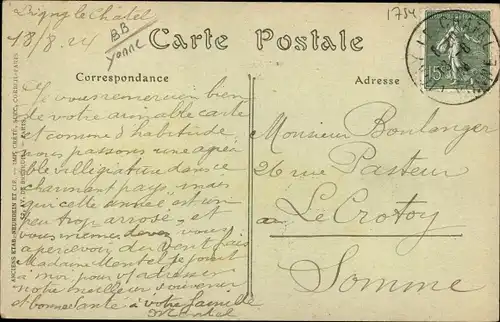 Ligny le Châtel
18/8.24
BB
Yonne
1754
Carte Postale
Correspondance
Adresse
15
Je vous remercie bien
de votre aimable carte
et comme d'habitude
nous passons une agréa
ble villégiature dans ce
charmant pays, mais
qui cette année est un
peu trop arrosé, et
vous même devez vous
apercevoir du vent frais
Madame Montel se joint
à moi pour vs adresser
notre meilleur souvenir
et bonne santé à votre famille
Montel
Monsieur Boulanger
26 rue Pasteur
au Le Crotoy
Somme